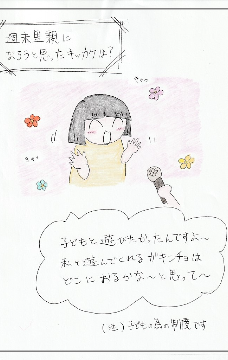 週末里親に
なろうと思ったキッカケは?
子どもと遊びたかったんですよ〜
私と遊んでくれるガキンチョは
どこにおるかな〜と思って〜
(注)子どもの為の制度です